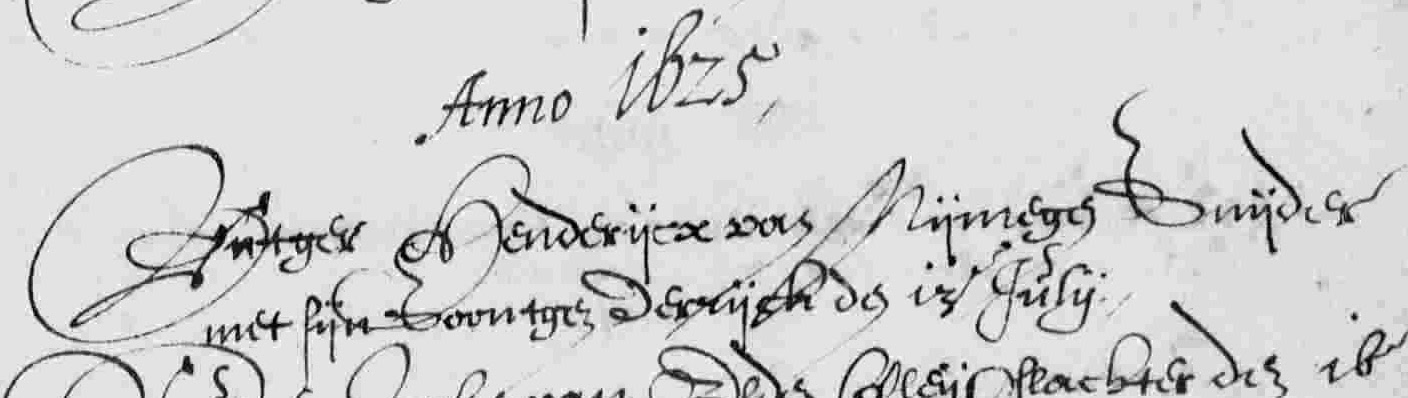 Anno 1625,
Rutger Henderijcx van Nijmegen Snijder
met sijn Soontgen Derrijck den 13 Julij.
vleijslachter den 16